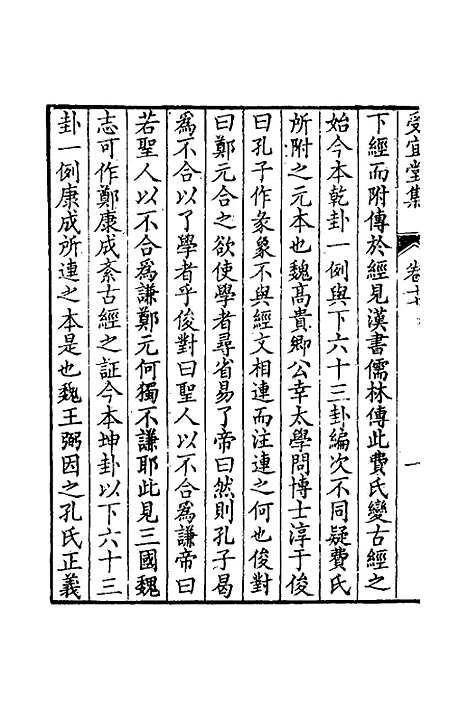 受宜堂集 卷十 一
下經而附傳於經見漢書儒林傳此費氏變古經之
始今本乾卦一例與下六十三卦編次不同疑費氏
所附之元本也魏高貴鄉公幸太學問博士淳于俊
曰孔子作彖象不與經文相連而注連之何也俊對
曰鄭元合之欲使學者尋省易了帝曰然則孔子曷
為不合以了學者乎俊對曰聖人以不合為謙帝曰
若聖人以不合為謙鄭元何獨不謙耶此見三國魏
志可作鄭康成紊古經之証今本坤卦以下六十三
卦一例康成所連之本是也魏王弼因之孔氏正義